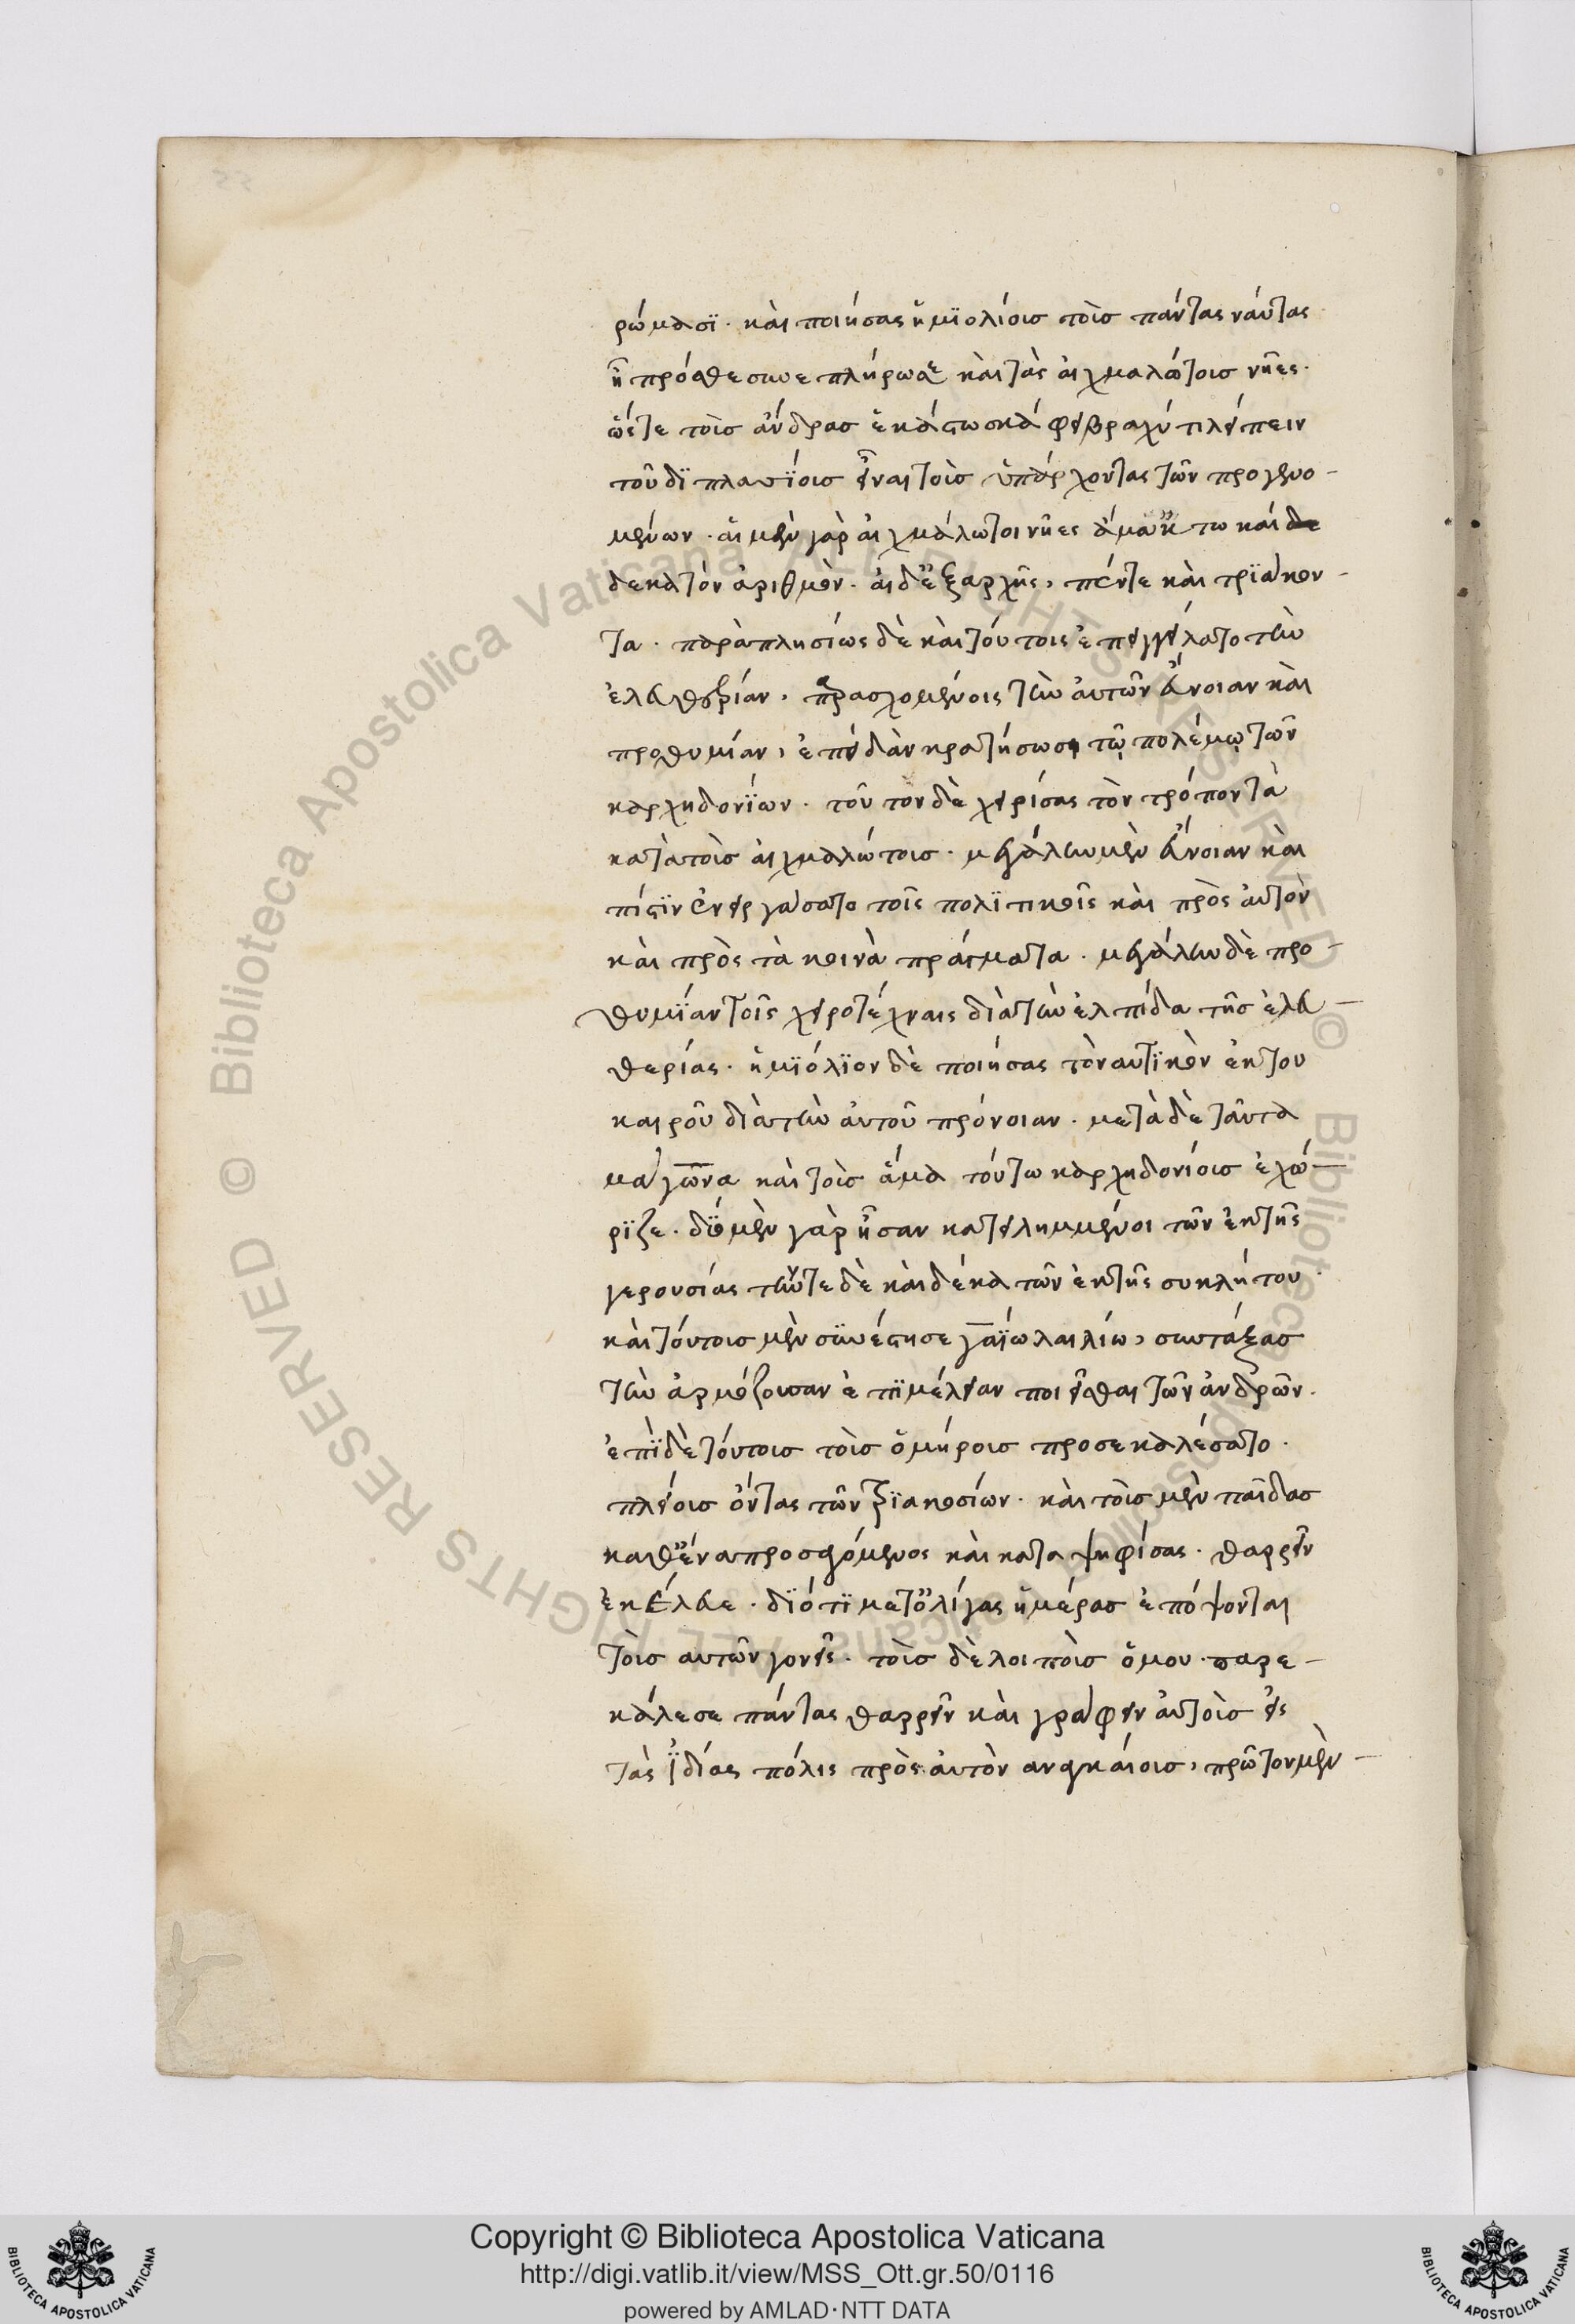 ρώμασϊ. καὶ ποιήσας ἡμϊολίοισ τοὶσ πάντας ναύτας
ἧ πρόσθεσιν ἐπλήρωσε καὶ τὰς αἰχμαλώτοισ νῆες.
ὥστε τοὶσ ἄνδρασ ἑκάστω σκάφει βραχύ τι λείπειν
τοῦ δϊπλασϊοισ εἶναι τοὶσ ὑπάρχοντας τῶν προγενο-
μένων. αἱ μὲν γὰρ αἰχμάλωτοι νῆες ἅμα ἢ τω καὶ δε
δεκα τὸν ἀριθμὸν. αἱ δ' ἐξαρχῆς, πέντε καὶ τρϊάκον-
τα. παραπλησίως δὲ καὶ τούτοις ἐπειγγείλατο τὴν
ἐλευθερίαν, παρασχομένοις τὴν αὐτῶν εὔνοιαν καὶ
προθυμίαν, ἐπειδὰν κρατήσωσι τῷ πολέμῳ τῶν
καρχηδονΐων. τοῦτον δὲ χειρίσας τὸν τρόπον τὰ
κατὰ τοὶσ αἰχμαλώτοισ. μεγάλην μὲν εὔνοιαν καὶ
πίστϊν ἐνειργάσατο τοῖς πολϊτικοῖς καὶ πρὸς αὐτὸν
καὶ πρὸς τὰ κοινὰ πράγματα. μεγάλην δὲ προ-
θυμΐαν τοῖς χειροτέχναις διὰ τὴν ἐλπίδα τῆσ ἐλευ-
θερίας. ἡμϊόλϊον δὲ ποιήσας τὸ ναυτϊκὸν ἐκ του
καιροῦ διὰ τὴν αὐτοῦ πρόνοιαν. μετὰ δὲ ταῦτα
μάγωνα καὶ τοὶσ ἅμα τούτω καρχηδονίοισ ἐχώ-
ρϊζε. δύο μὲν γὰρ ἦσαν κατειλημμένοι τῶν ἐκ τῆς
γερουσίας πέντε δὲ καὶ δέκα τῶν ἐκ τῆς συκλήτου.
καὶ τούτοισ μὲν συνέστησε γαΐω λαιλίω, συντάξασ
τὴν ἁρμόζουσαν ἐπϊμέλειαν ποιεῖσθαι τῶν ἀνδρῶν.
ἐπῒ δὲ τούτοισ τοὶσ ὁμήροισ προσεκαλέσατο.
πλείοισ ὄντας τῶν τρϊακοσίων. καὶ τοὶσ μὲν παῖδασ
καθ' ἕνα προσαγόμενος καὶ καταψηφίσας. θαρρεῖν
ἐκέλευε. δϊότϊ μετ' ὀλίγας ἡμέρασ ἐπόψονται
τοὶσ αυτῶν γονεῖς. τοὶσ δὲ λοιποὶσ ὅμου παρε-
κάλεσε πάντας θαρρεῖν καὶ γράφειν αὐτοὶσ εἰς
τὰς ἰδίας πόλις πρὸς αὐτὸν αναγκαίοισ, πρῶτον μὲν-
Copyright © Biblioteca Apostolica Vaticana
http://digi.vatlib.it/view/MSS_Ott.gr.50/0116
powered by AMLAD·NTT DATA